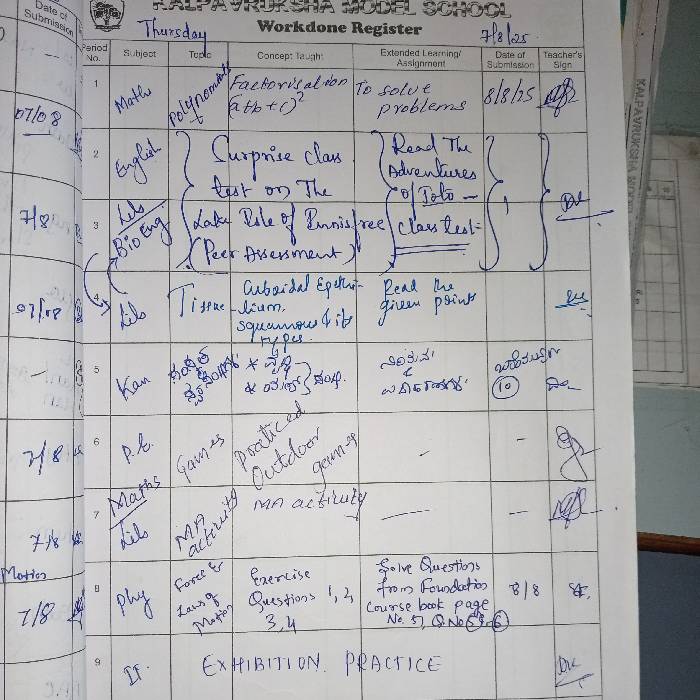 KALPAVRUKSHA MODEL SCHOOL
Workdone Register
Thursday
7/8/25
Date of Submission
Period No.
Subject
Topic
Concept Taught
Extended Learning/ Assignment
Date of Submission
Teacher's Sign
1
Maths
Polynomials
Factorisation
(a+b+c)²
To solve
problems
8/8/25
07/08
2
English
Surprise class
test on The
Read The
Adventures
of Toto –
7/8
3
Lib
Bio Eng
Lake Isle of Innisfree
(Peer Assessment)
class test
4
Lib
Tissue
Cuboidal Epithe-
-lium,
squamous & its
types.
Read the
given points
07/08
5
Kan
10
6
P.E.
Games
Practiced
Outdoor
games
–
–
7/8
Maths
7
Lib
MA
activity
MA activity
—
–
7/8
Motion
8
Phy
Force &
Laws of
Motion
Exercise
Questions 1, 2,
3, 4
Solve Questions
from Foundation
Course book page
No. 5, Q No
8/8
7/8
9
IT
EXHIBITION PRACTICE
KALPAVRUKSHA